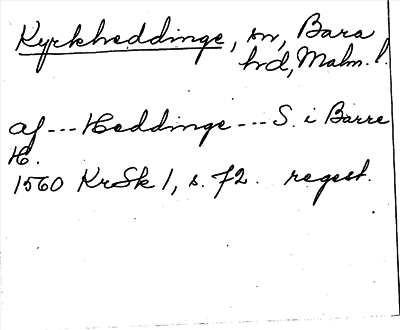 Kyrkheddinge, sn, Bara
hd, Malm. l.
af --- Heddinge --- S. i Barre
H.
1560 KrSk 1, s. 72. regest.